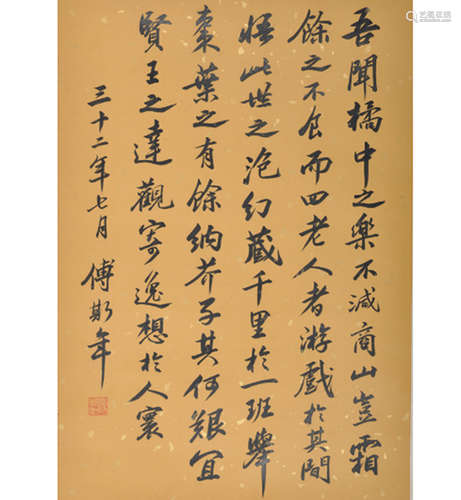 吾聞橘中之樂不減商山豈霜
餘之不食而四老人者游戲於其間
悟此世之泡幻藏千里於一班舉
棗葉之有餘納芥子其何艱宜
賢王之達觀寄逸想於人寰
三十二年七月 傅斯年